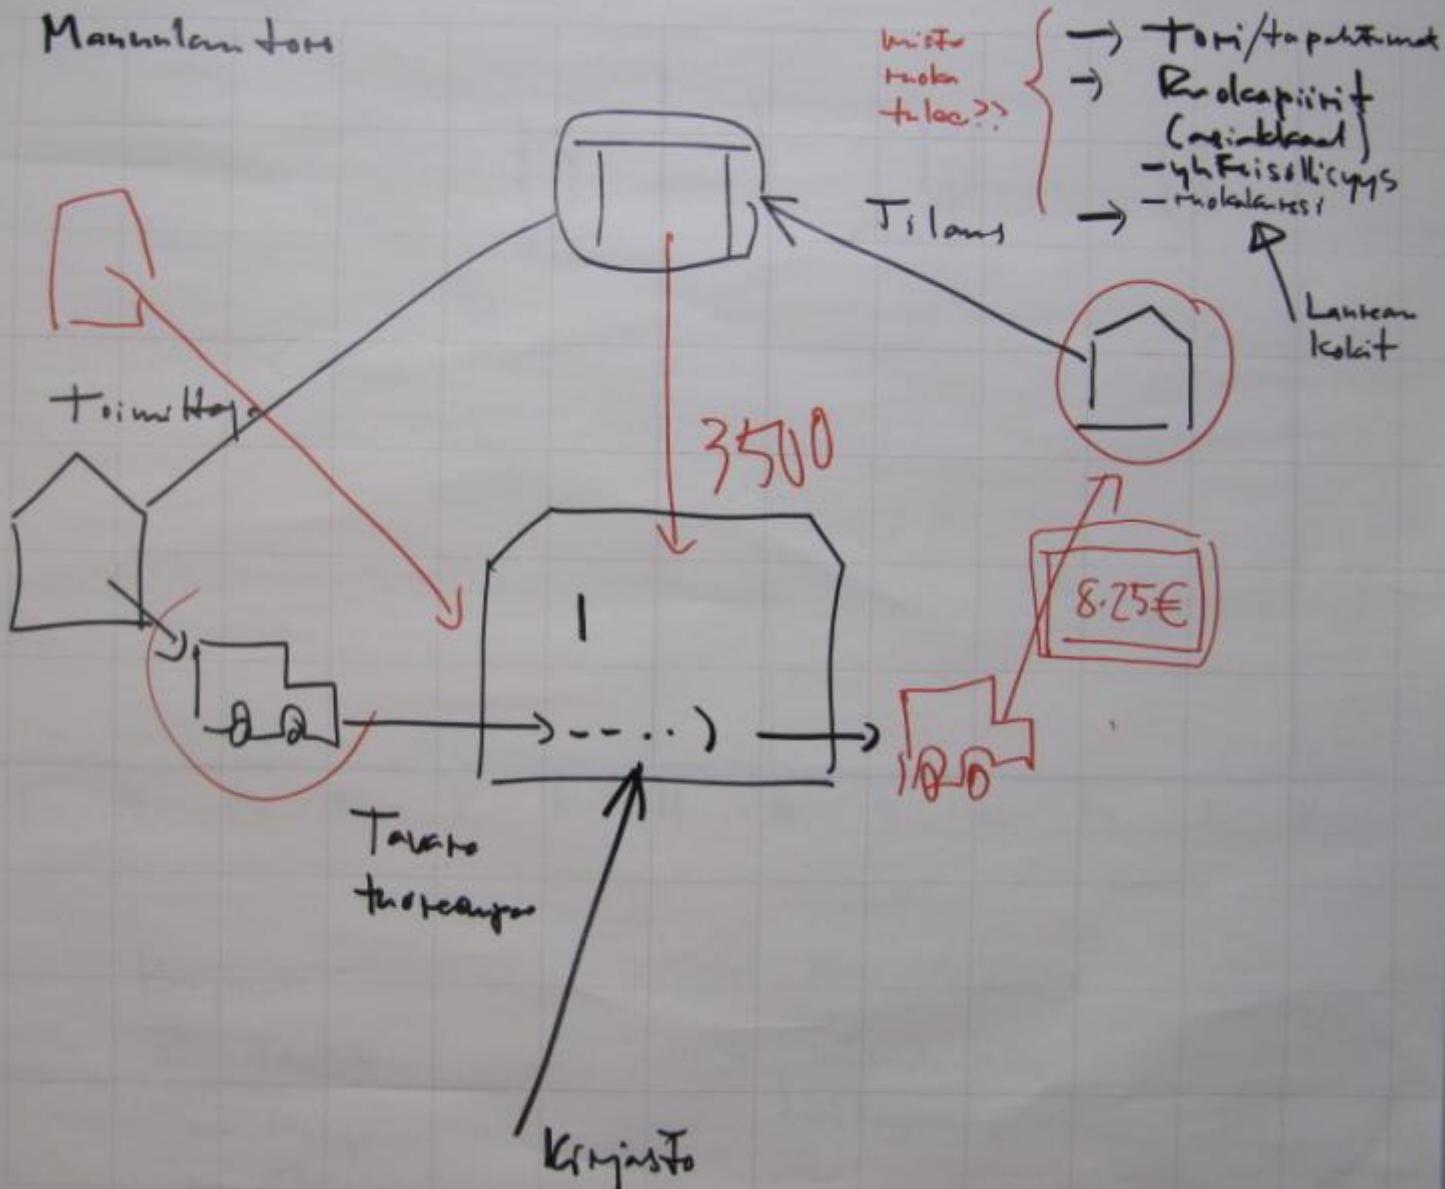 Maunulan toro
mistä
ruoka
tulee??
→ Tori/tapahtumat
→ Ruokapiirit
(asiakkaat)
- yhteisöllisyys
- ruokakurssi
→
Laurean
kokit
Tilaus
Toimittaja
3500
8.25€
Tavara
Kirjasto